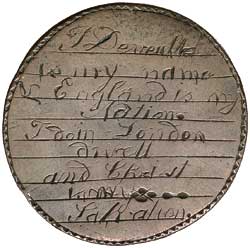 I Deverill
is my name
& England is my
Nation.
I Born London
Dwell
and Christ
is my
Salvation.